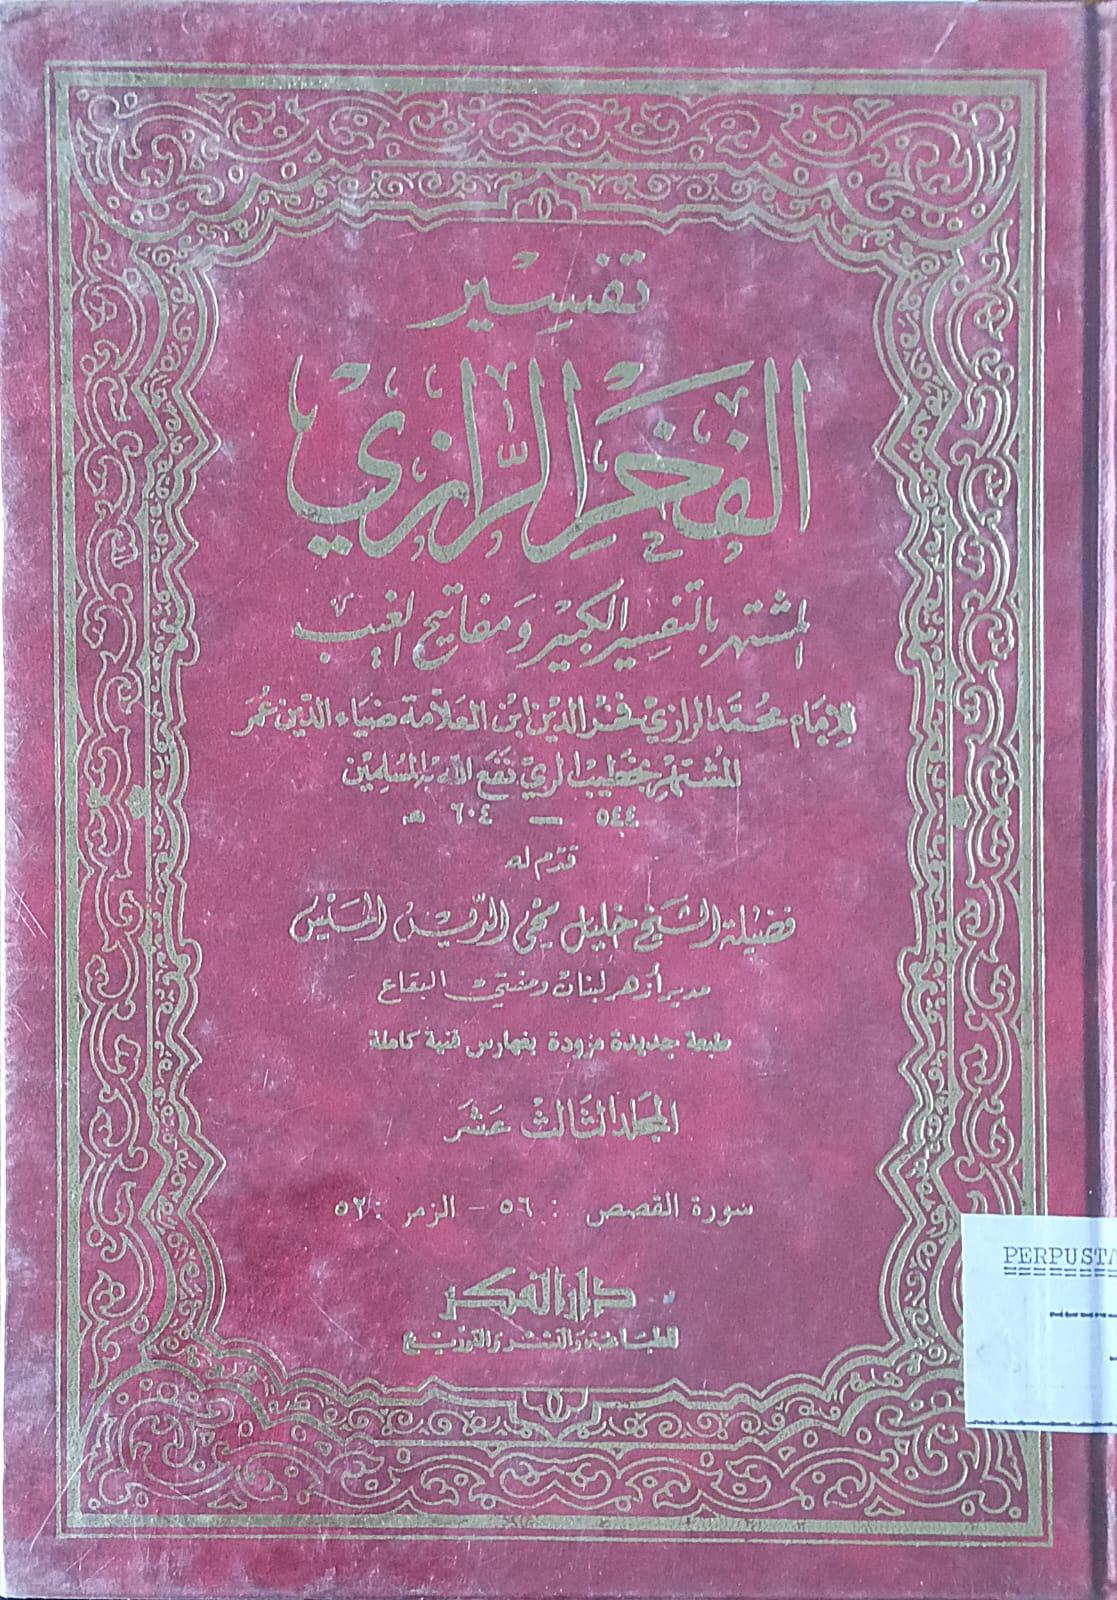 تفسير
الفخر الرازي
المشتهر بالتفسير الكبير ومفاتيح الغيب
للإمام محمد الرازي فخر الدين ابن العلامة ضياء الدين عمر
المشتهر بخطيب الري نفع الله به المسلمين
٥٤٤ — ٦٠٤ هـ
قدم له
فضيلة الشيخ خليل محي الدين الميس
مدير أزهر لبنان ومفتي البقاع
طبعة جديدة مزودة بفهارس فنية كاملة
المجلد الثالث عشر
سورة القصص : ٥٦ - الزمر : ٥٢
دار الفكر
للطباعة والنشر والتوزيع
PERPUSTA